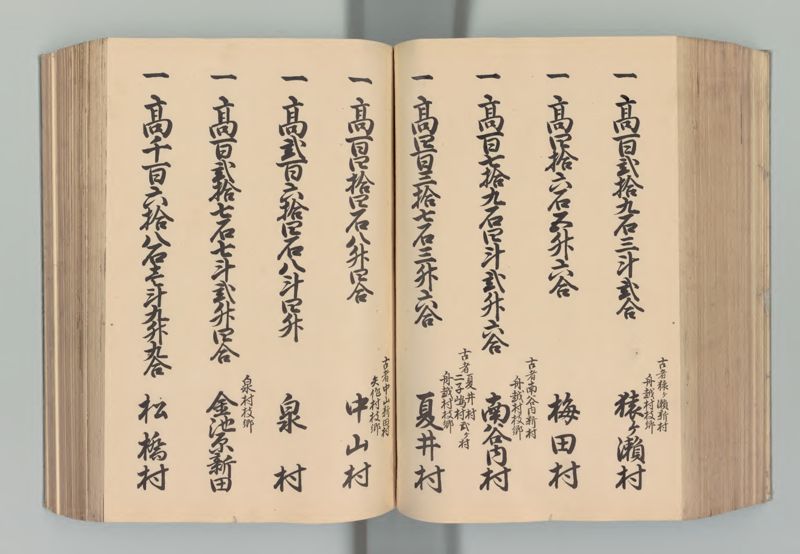 一 高百弐拾九石三斗弐合
古者猿ヶ瀬新村
舟越村枝郷
猿ヶ瀬村
一 高四拾六石五升六合
梅田村
一 高百七拾九石四斗弐升六合
古者南谷内新村
舟越村枝郷
南谷内村
一 高四百三拾七石三升六合
古者夏井村
二子嶋村弐ヶ村
舟越村枝郷
夏井村
一 高百四拾四石八升四合
古者中山新田村
矢作村枝郷
中山村
一 高弐百六拾四石八斗四升
泉村
一 高百弐拾七石七斗弐升四合
泉村枝郷
金池原新田
一 高千百六拾八石七斗九升九合
松橋村